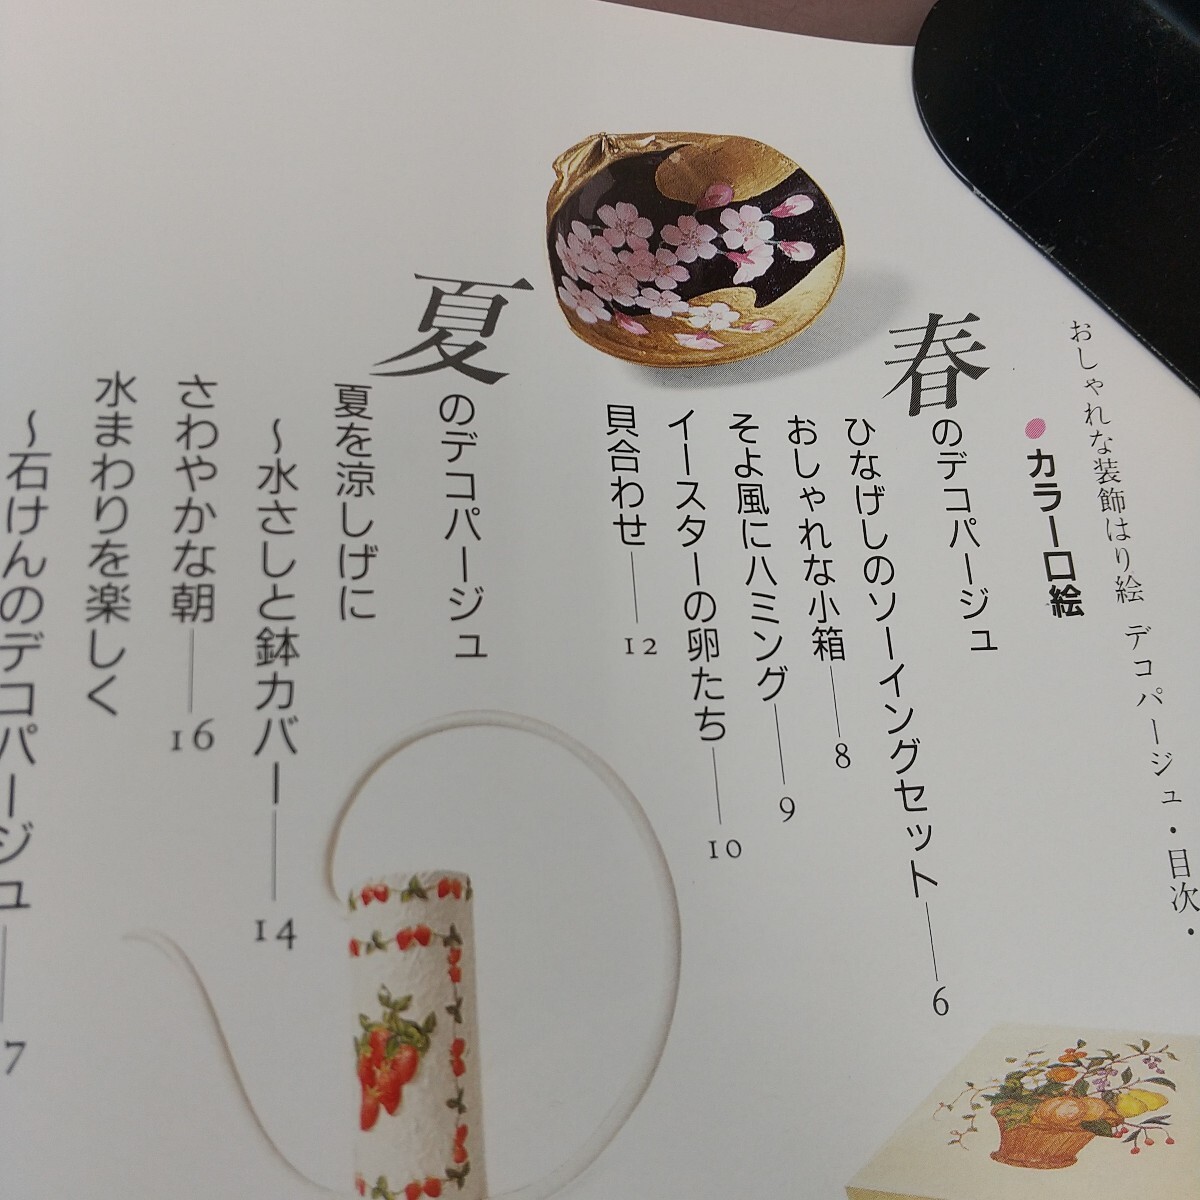 おしゃれな装飾はり絵 デコパージュ・目次・
●カラー口絵
春のデコパージュ
ひなげしのソーイングセット──6
おしゃれな小箱──8
そよ風にハミング──9
イースターの卵たち──10
貝合わせ──12
夏のデコパージュ
夏を涼しげに
〜水さしと鉢カバー──14
さわやかな朝──16
水まわりを楽しく
〜石けんのデコパージュ──7